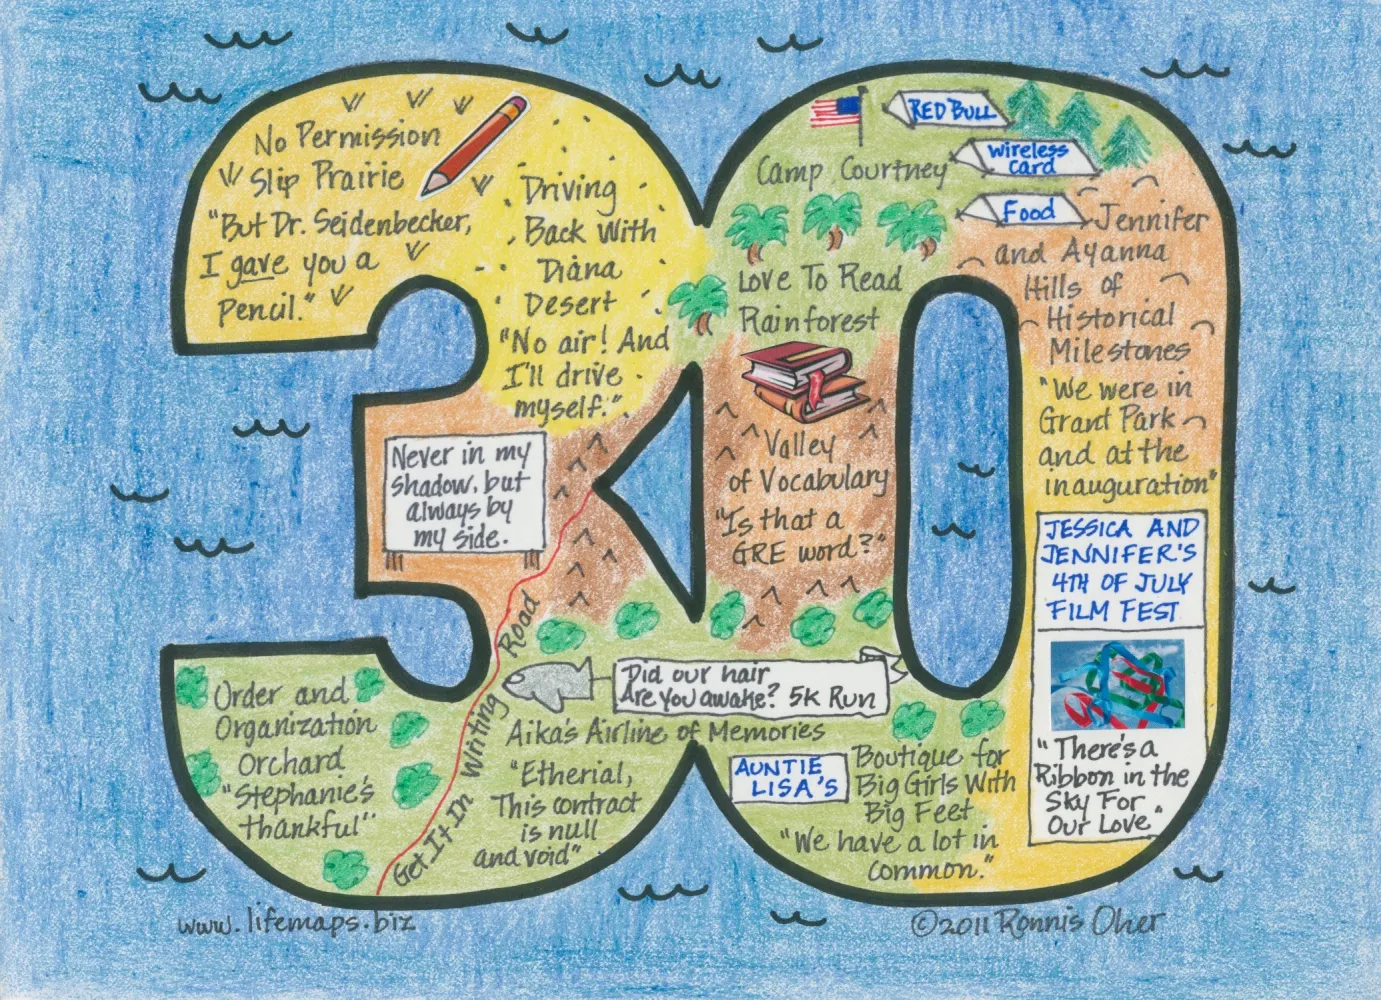 No Permission
Slip Prairie
"But Dr. Seidenbecker,
I gave you a
pencil."
Driving
Back With
Diana
Desert
"No air! And
I'll drive
myself."
Camp Courtney
RED BULL
Wireless
Card
Food
Love To Read
Rainforest
Jennifer
and Ayanna
Hills of
Historical
Milestones
"We were in
Grant Park
and at the
inauguration"
Never in my
shadow, but
always by
my side.
Valley
of Vocabulary
"Is that a
GRE word?"
JESSICA AND
JENNIFER'S
4TH OF JULY
FILM FEST
"There's a
Ribbon in the
Sky For
Our Love."
Order and
Organization
Orchard
"Stephanie's
thankful"
Get It In Writing Road
Did our hair
Are you awake? 5K Run
Aika's Airline of Memories
"Etherial,
This contract
is null
and void"
AUNTIE
LISA'S
Boutique for
Big Girls With
Big Feet
"We have a lot in
common."
www.lifemaps.biz
©2011 Ronnis Oher